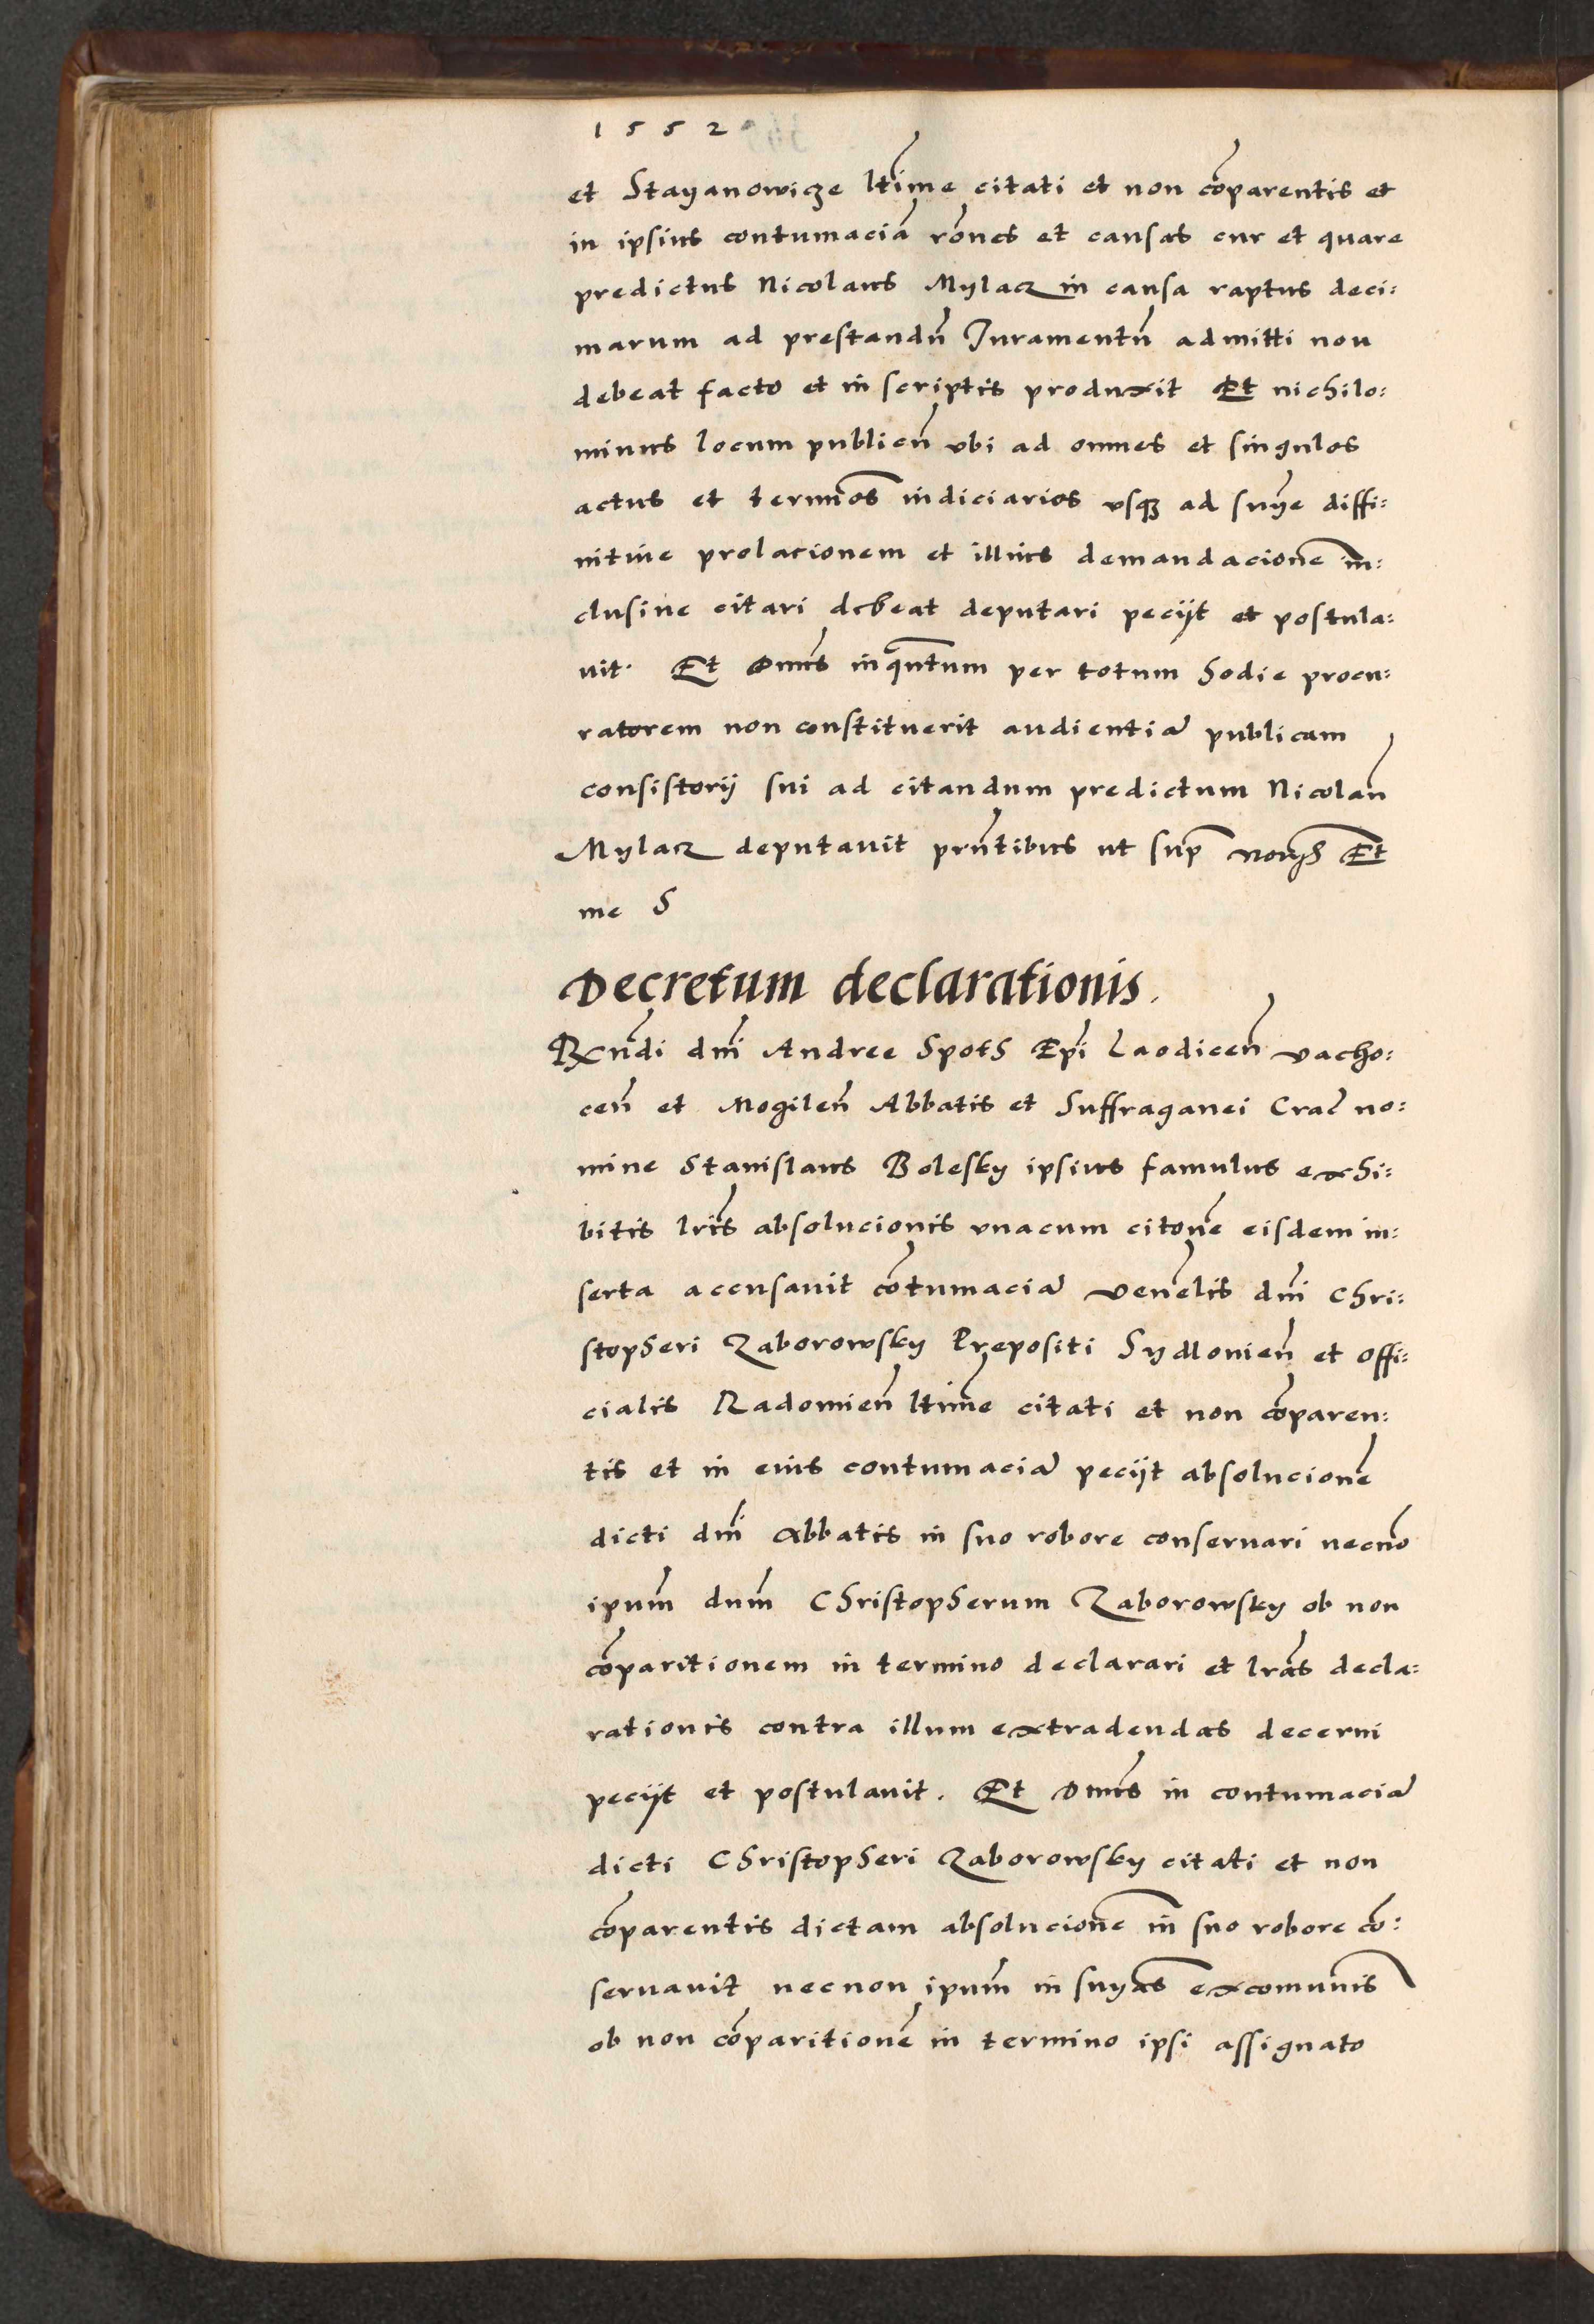 1552
et Stayanowicze ltime citati et non comparentis et
in ipsius contumaciã rones et causas cur et quare
predictus Nicolaus Mylacz in causa raptus deci:
marum ad prestandũ Juramentũ admitti non
debeat facto et in scriptis produxit Et nichilo:
minus locum publicũ vbi ad omnes et singulos
actus et terminos iudiciarios vsqꝫ ad snÿe diffi:
nitiue prolacionem et illius demandacionẽ in:
clusiue citari debeat deputari pecijt et postula:
uit. Et Dnus inquantum per totum hodie procu:
ratorem non constituerit audientiã publicam
consistorij sui ad citandum predictum Nicolaũ
Mylacz deputauit pnntibus ut supra Et
me
Decretum declarationis.
Rxndi dni Andree Spots Epi Laodiceñ vacho:
ceñ et Mogileñ Abbatis et Suffraganei Crac̃ no:
mine Stanislaus Bolesky ipsius famulus exhi:
bitis lris absolucionis vnacum citone eisdem in:
serta accusauit cõtumaciã venelis dni Chri:
stopheri Zaborowsky Prepositi Sydlonieñ et offi:
cialis Radomieñ ltime citati et non cõparen:
tis et in eius contumaciã pecijt absolucionẽ
dicti dni Abbatis in suo robore conseruari necnõ
ipum dnum Christopherum Zaborowsky ob non
cõparitionem in termino declarari et lras decla:
rationis contra illum extradendas decerni
pecijt et postulauit. Et Dnus in contumaciã
dicti Christopheri Zaborowsky citati et non
cõparentis dictam absolucionẽ in suo robore cõ:
seruauit necnon ipum in snÿas excomunis
ob non cõparitionẽ in termino ipsi assignato